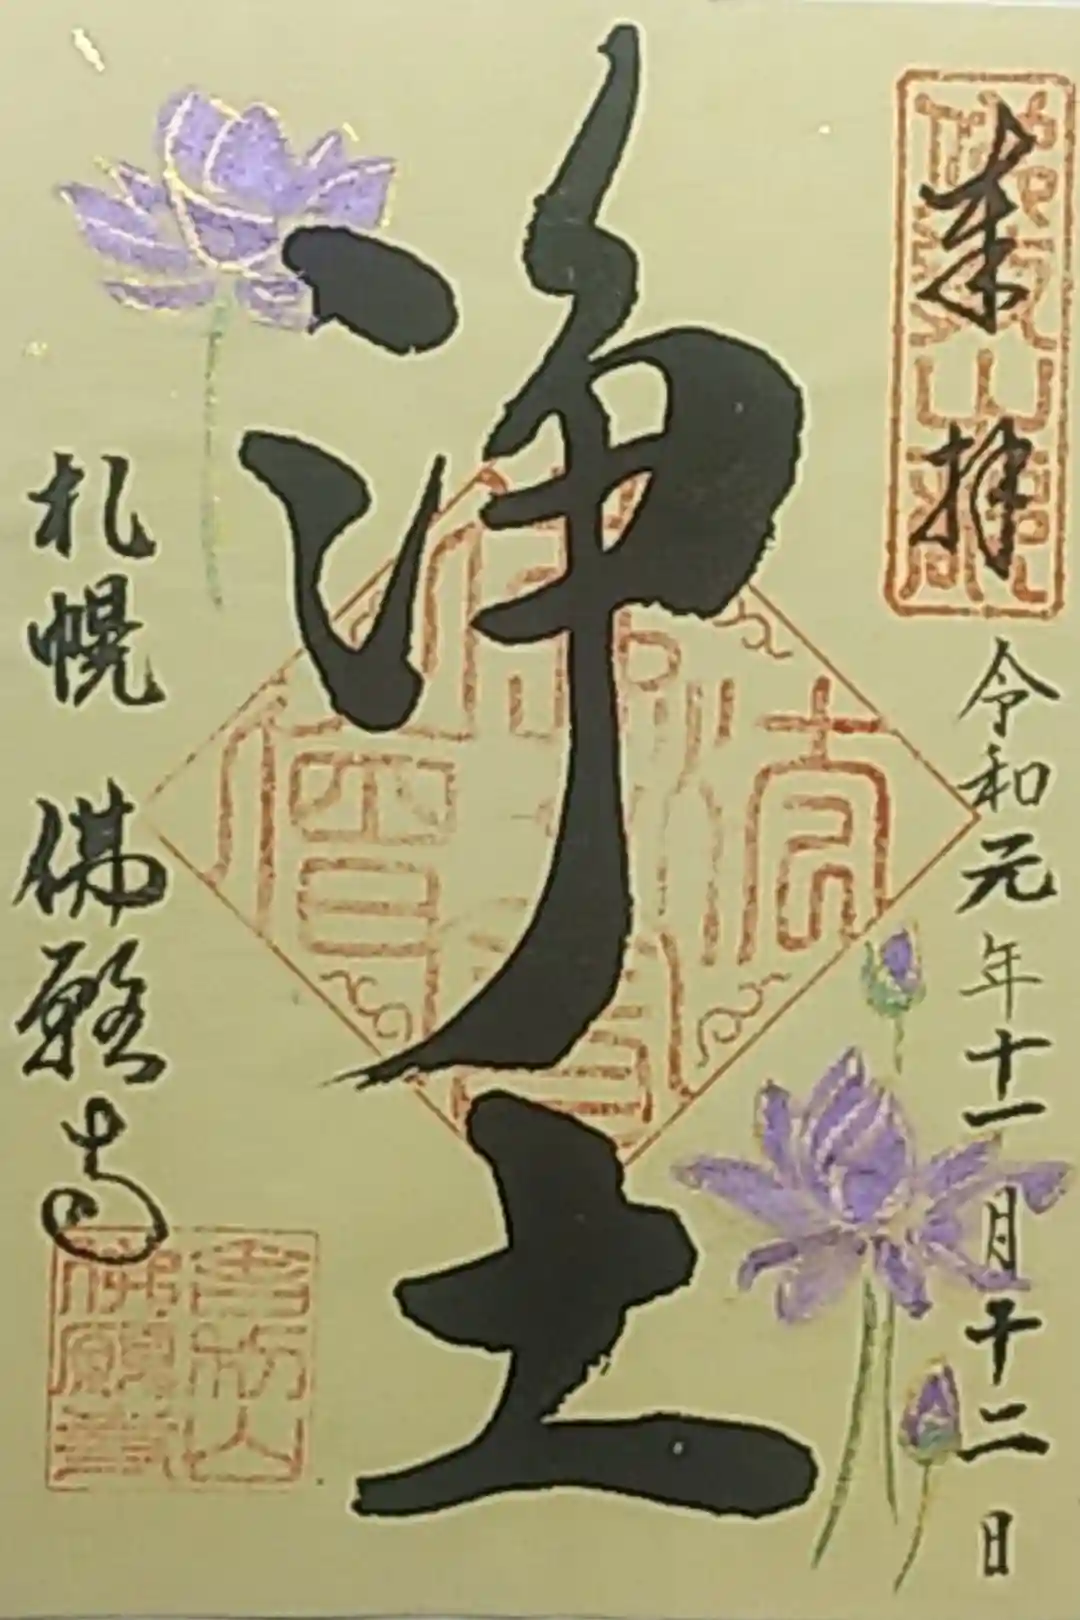 奉拝
令和元年十一月十二日
浄土
佛法僧寳
札幌 佛願寺